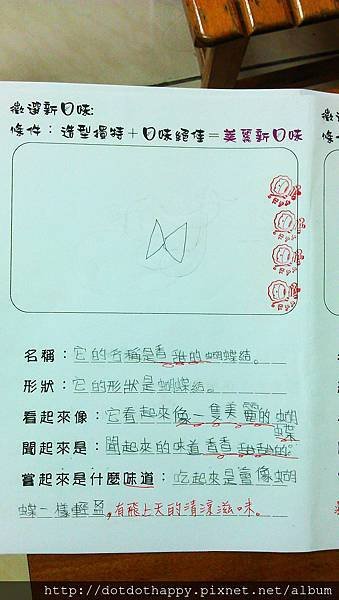 徵選新口味:
條件：造型獨特＋口味絕佳＝美麗新口味
名稱：它的名稱是香甜的蝴蝶結。
形狀：它的形狀是蝴蝶結。
看起來像：它看起來像一隻美麗的蝴蝶
聞起來是：聞起來的味道香香甜甜的。
嘗起來是什麼味道：吃起來是會像蝴
蝶一樣輕盈，有飛上天的清涼滋味。
http://dotdothappy.pixnet.net/album